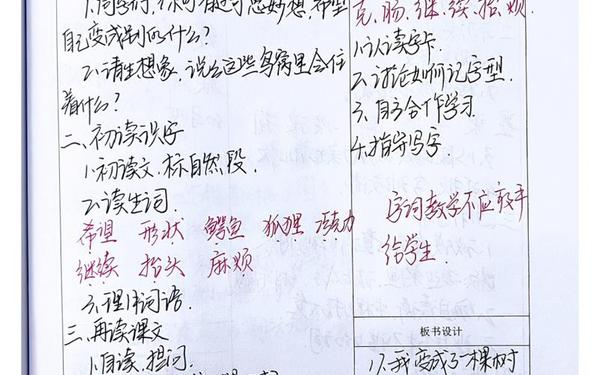 1.同学们,你可有过奇思妙想,希望
自己变成别的什么?
2.请生想象,说么这些鸟窝里会住
着什么?
二、初读识字
1.初读文,标自然段.
2.读生词
希望 形状 鳄鱼 狐狸 活力
继续 抬头 麻烦
3.理解词语.
三、再读课文
1.自读.提问.
克、肠、继、续、抬、烦.
1.认读字卡.
2.讨论如何记字型.
3.自主合作学习
4.指导写字
字词教学不应放手
给学生.
板书设计
17.我变成了一棵树